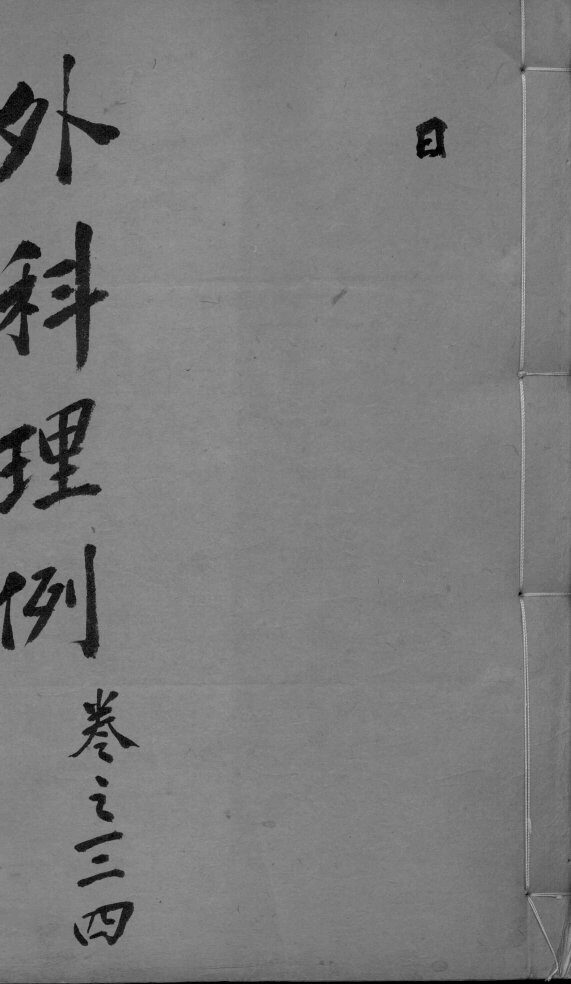 日
外科理例
卷之三四